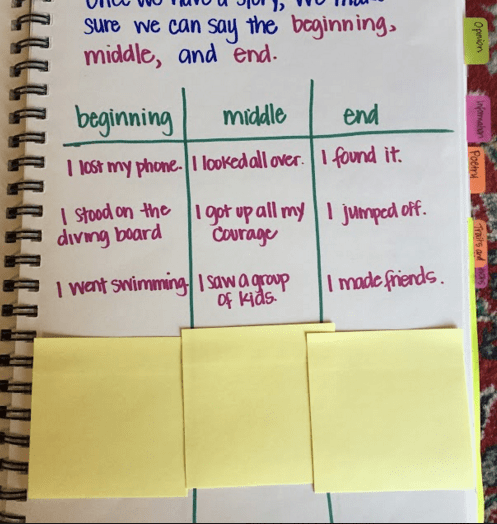 sure we can say the beginning,
middle, and end.
beginning middle end
I lost my phone. I looked all over. I found it.
I stood on the I got up all my I jumped off.
diving board courage
I went swimming. I saw a group I made friends.
of kids.
Opinion
Information
Poetry
Traits and